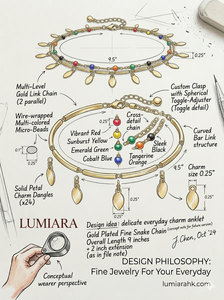 9.5"
0.25"
Multi-Level
Gold Link Chain
(2 parallel)
Custom Clasp
with Spherical
Toggle-Adjuster
(Toggle detail)
Wire-wrapped
Multi-colored
Micro-Beads
Cross-
detail
chain
Vibrant Red
Sunburst Yellow
Emerald Green
Cobalt Blue
Sleek
Black
Tangerine
Orange
Curved
Bar Link
structure
0.7"
0.25"
9.5"
Charm
size 0.25"
Solid Petal
Charm
Dangles (x24)
0.25"
LUMIARA
Design idea: delicate everyday charm anklet
Gold Plated Fine Snake Chain
Overall Length 9 inches
+ 2 inch extension
(as in file note)
J. Chen, Oct '24
Conceptual
wearer perspective
DESIGN PHILOSOPHY:
Fine Jewelry For Your Everyday
lumiarahk.com